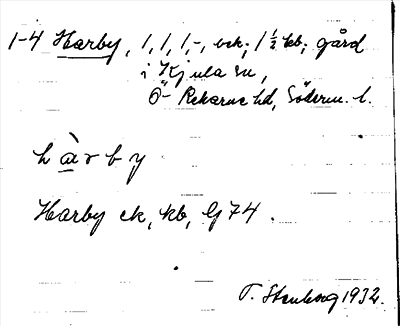 1-4 Harby, 1, 1, 1,-, eck; 1 ½ kb; gård
i Kjula sn,
Ö- Rekarne hd, Söderm. l.
hàrby
Harby ek, kb, G 74.
T. Stenborg 1932.